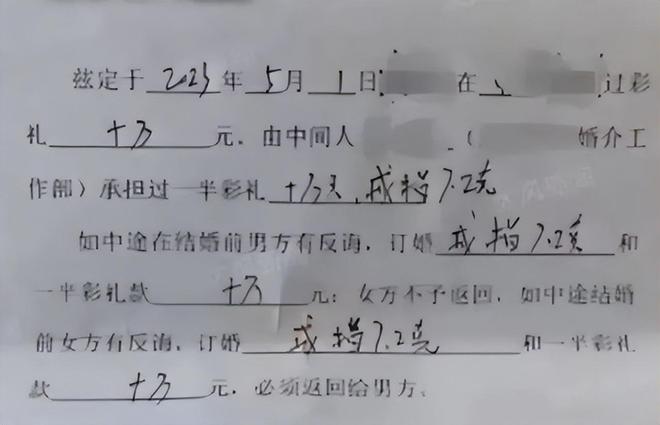 兹定于2023年5月1日 在 过彩
礼十万元，由中间人 （ 婚介工
作部）承担过一半彩礼十万元，戒指7.2克
如中途在结婚前男方有反诲，订婚戒指7.2克和
一半彩礼款十万元；女方不予返回，如中途结婚
前女方有反诲，订婚戒指7.2克和一半彩礼
款十万元，必须返回给男方。